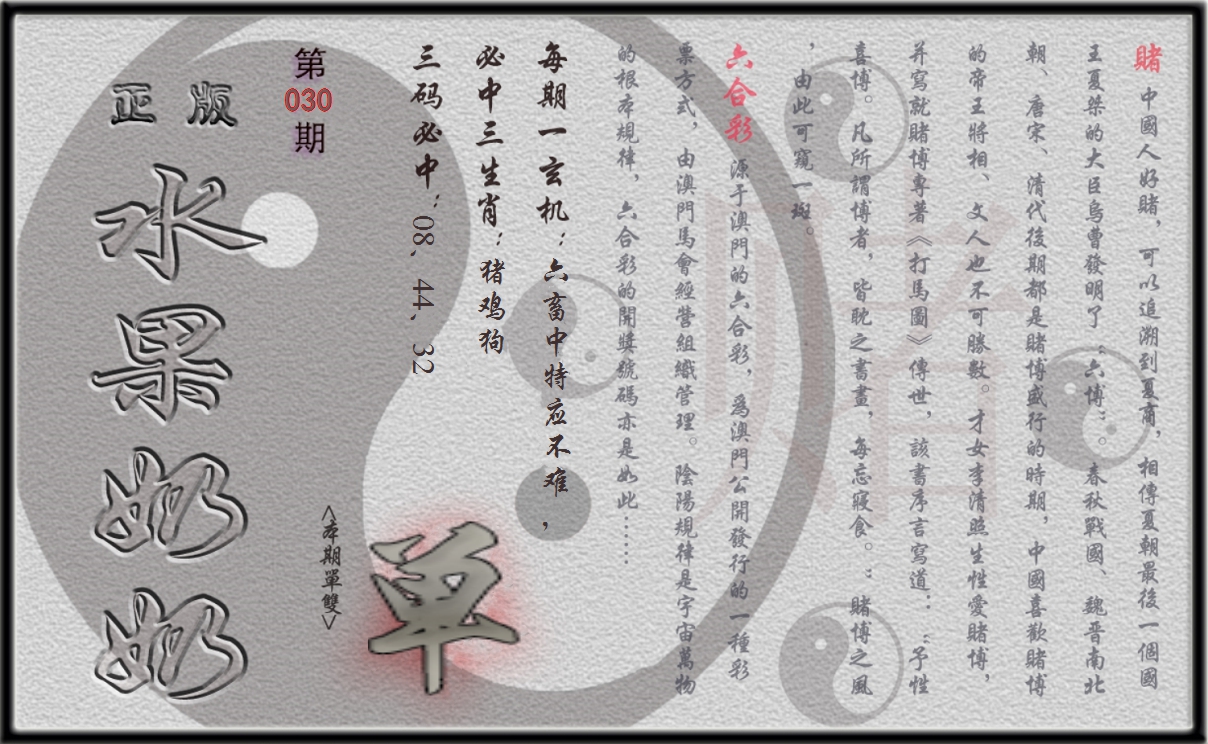 賭 中國人好賭，可以追溯到夏商，相傳夏朝最後一個國
王夏桀的大臣烏曹發明了：六博：。春秋戰國、魏晉南北
朝、唐宋、清代後期都是賭博盛行的時期，中國喜歡賭博
的帝王將相、文人也不可勝數。才女李清照生性愛賭博，
并寫就賭博專著《打馬圖》傳世，該書序言寫道：：予性
喜博。凡所謂博者，皆耽之書畫，每忘寢食。：賭博之風
，由此可窺一斑。
六合彩 源于澳門的六合彩，為澳門公開發行的一種彩
票方式，由澳門馬會經營組織管理。陰陽規律是宇宙萬物
的根本規律，六合彩的開獎號碼亦是如此……
每期一玄机：六畜中特应不难，
必中三生肖：猪鸡狗
三码必中：08、44、32
单
<本期單雙>
第
030
期
正版
水果奶奶